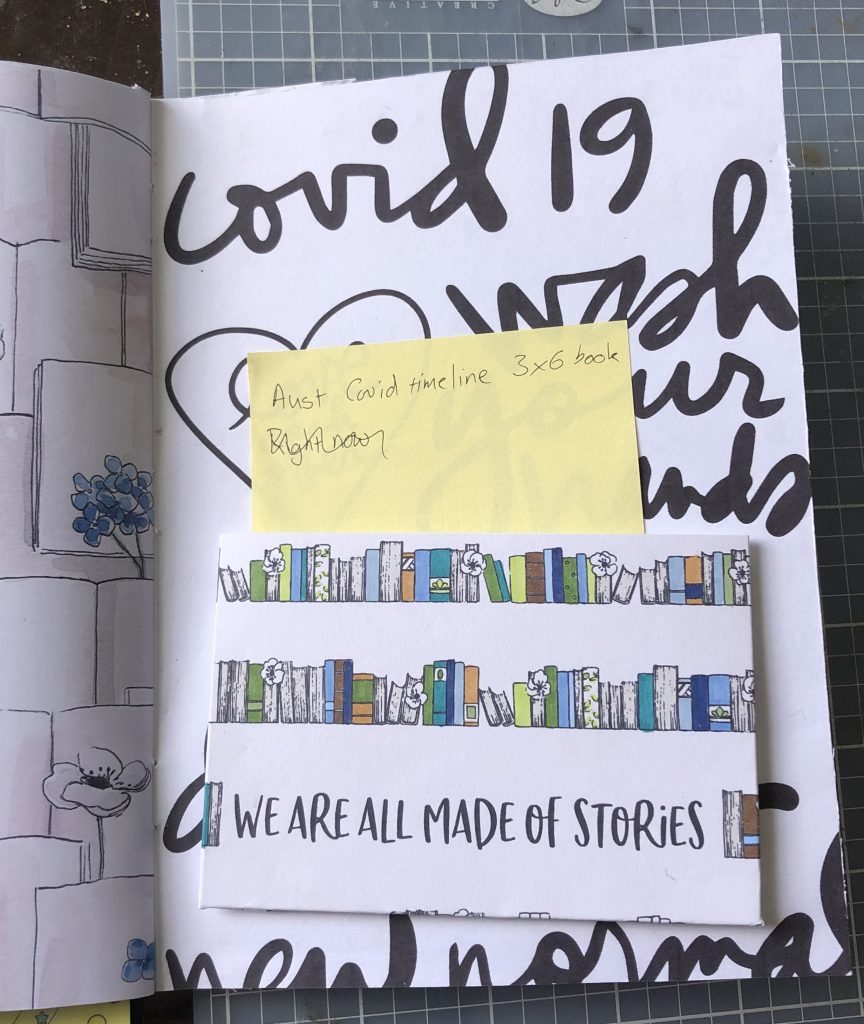 CREATIVE
covid 19
wash
your
hands
Aust Covid timeline 3x6 book
Right now
WE ARE ALL MADE OF STORIES
new normal